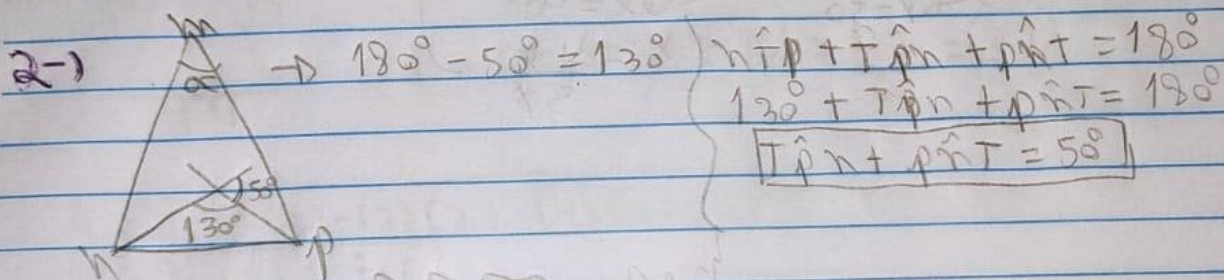 2-) → 180° - 50° = 130°
m
α
50°
130°
n p
nT̂p + Tp̂n + pn̂T = 180°
130° + Tp̂n + pn̂T = 180°
Tp̂n + pn̂T = 50°